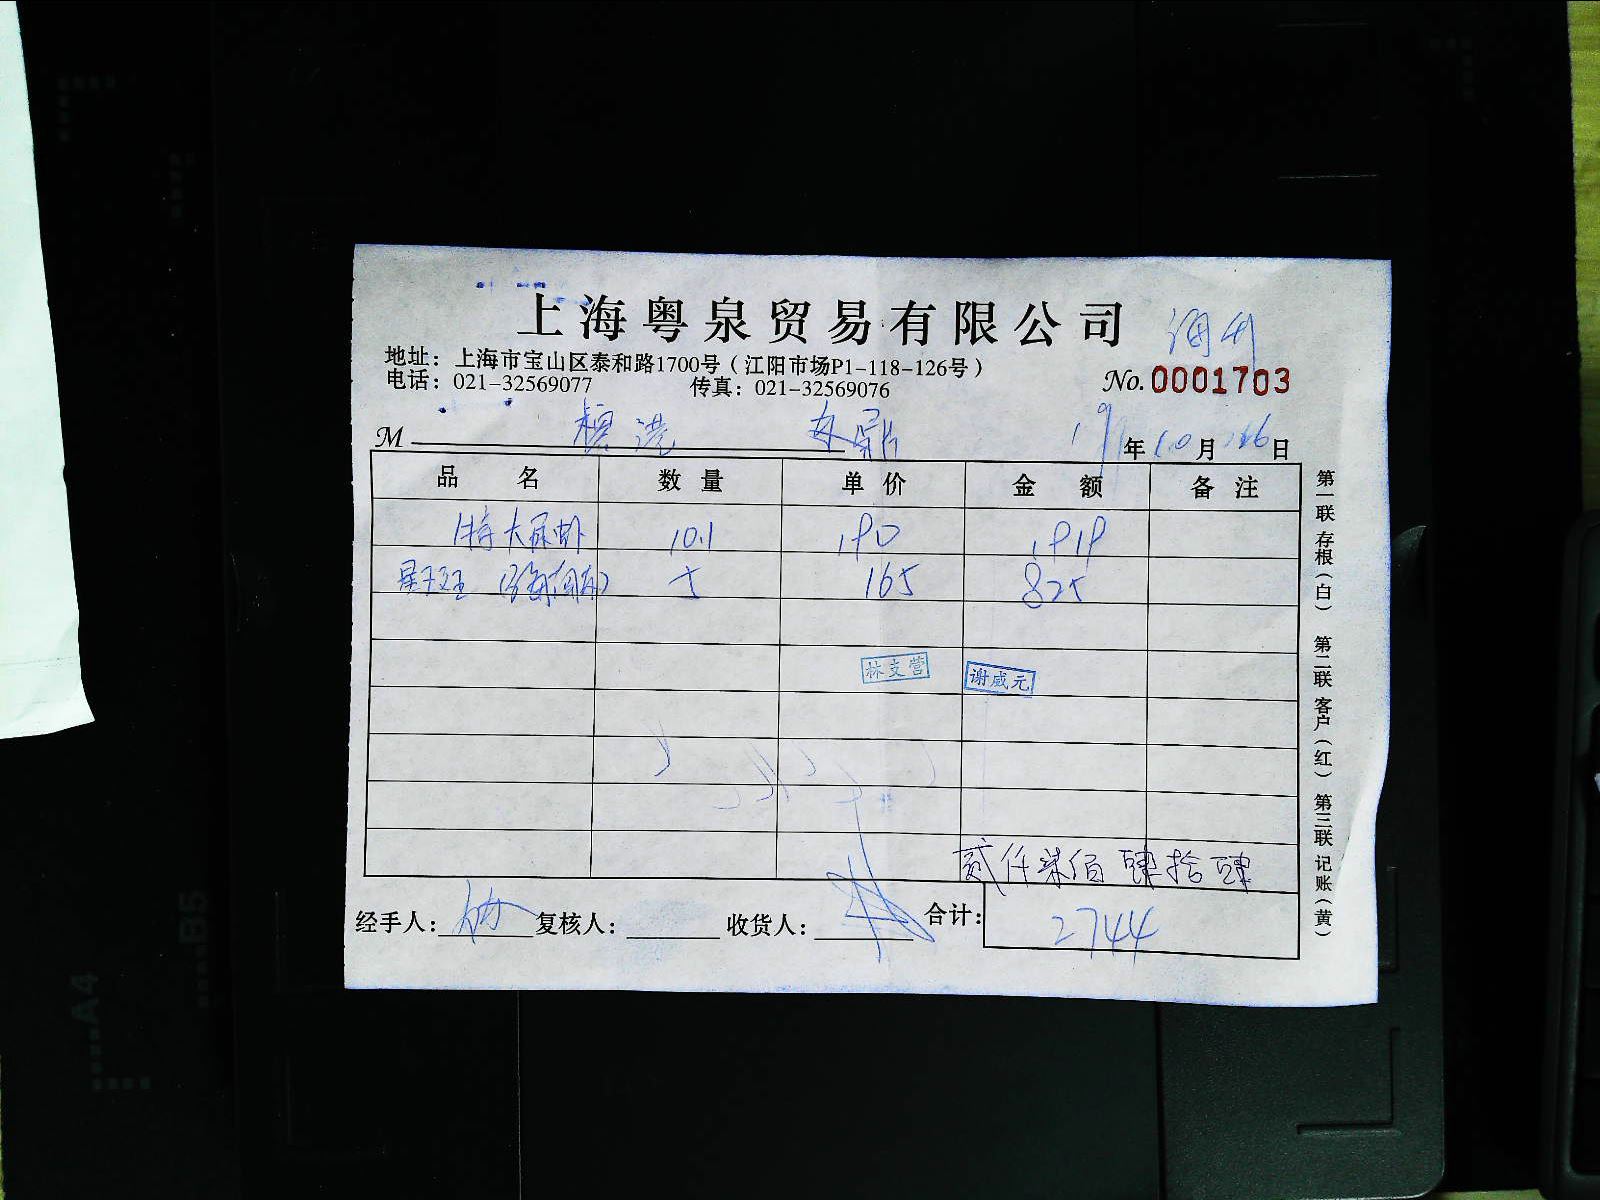 上海粤泉贸易有限公司
地址：上海市宝山区泰和路1700号（江阳市场P1-118-126号）
电话：021-32569077 传真：021-32569076
No.0001703
M 19年10月26日
品名 数量 单价 金额 备注
特大尿虾 10.1 190 1919
星斑 5 165 825
林支营 谢咸元
贰仟柒佰肆拾肆
经手人： 复核人： 收货人： 合计：2744
第一联 存根（白） 第二联 客户（红） 第三联 记账（黄）
A4
B5